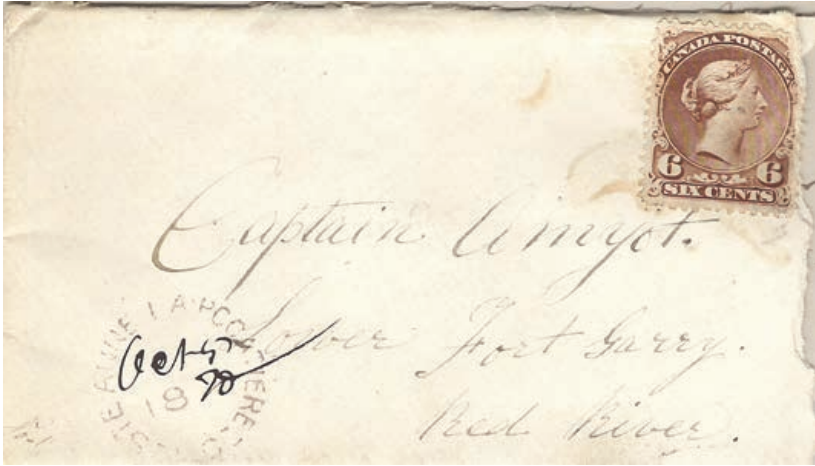 CANADA POSTAGE
6 6
SIX CENTS
Captain Amyot.
Lower Fort Garry.
Red River.
STE ANNE LA POCATIERE
Oct 5
18 70